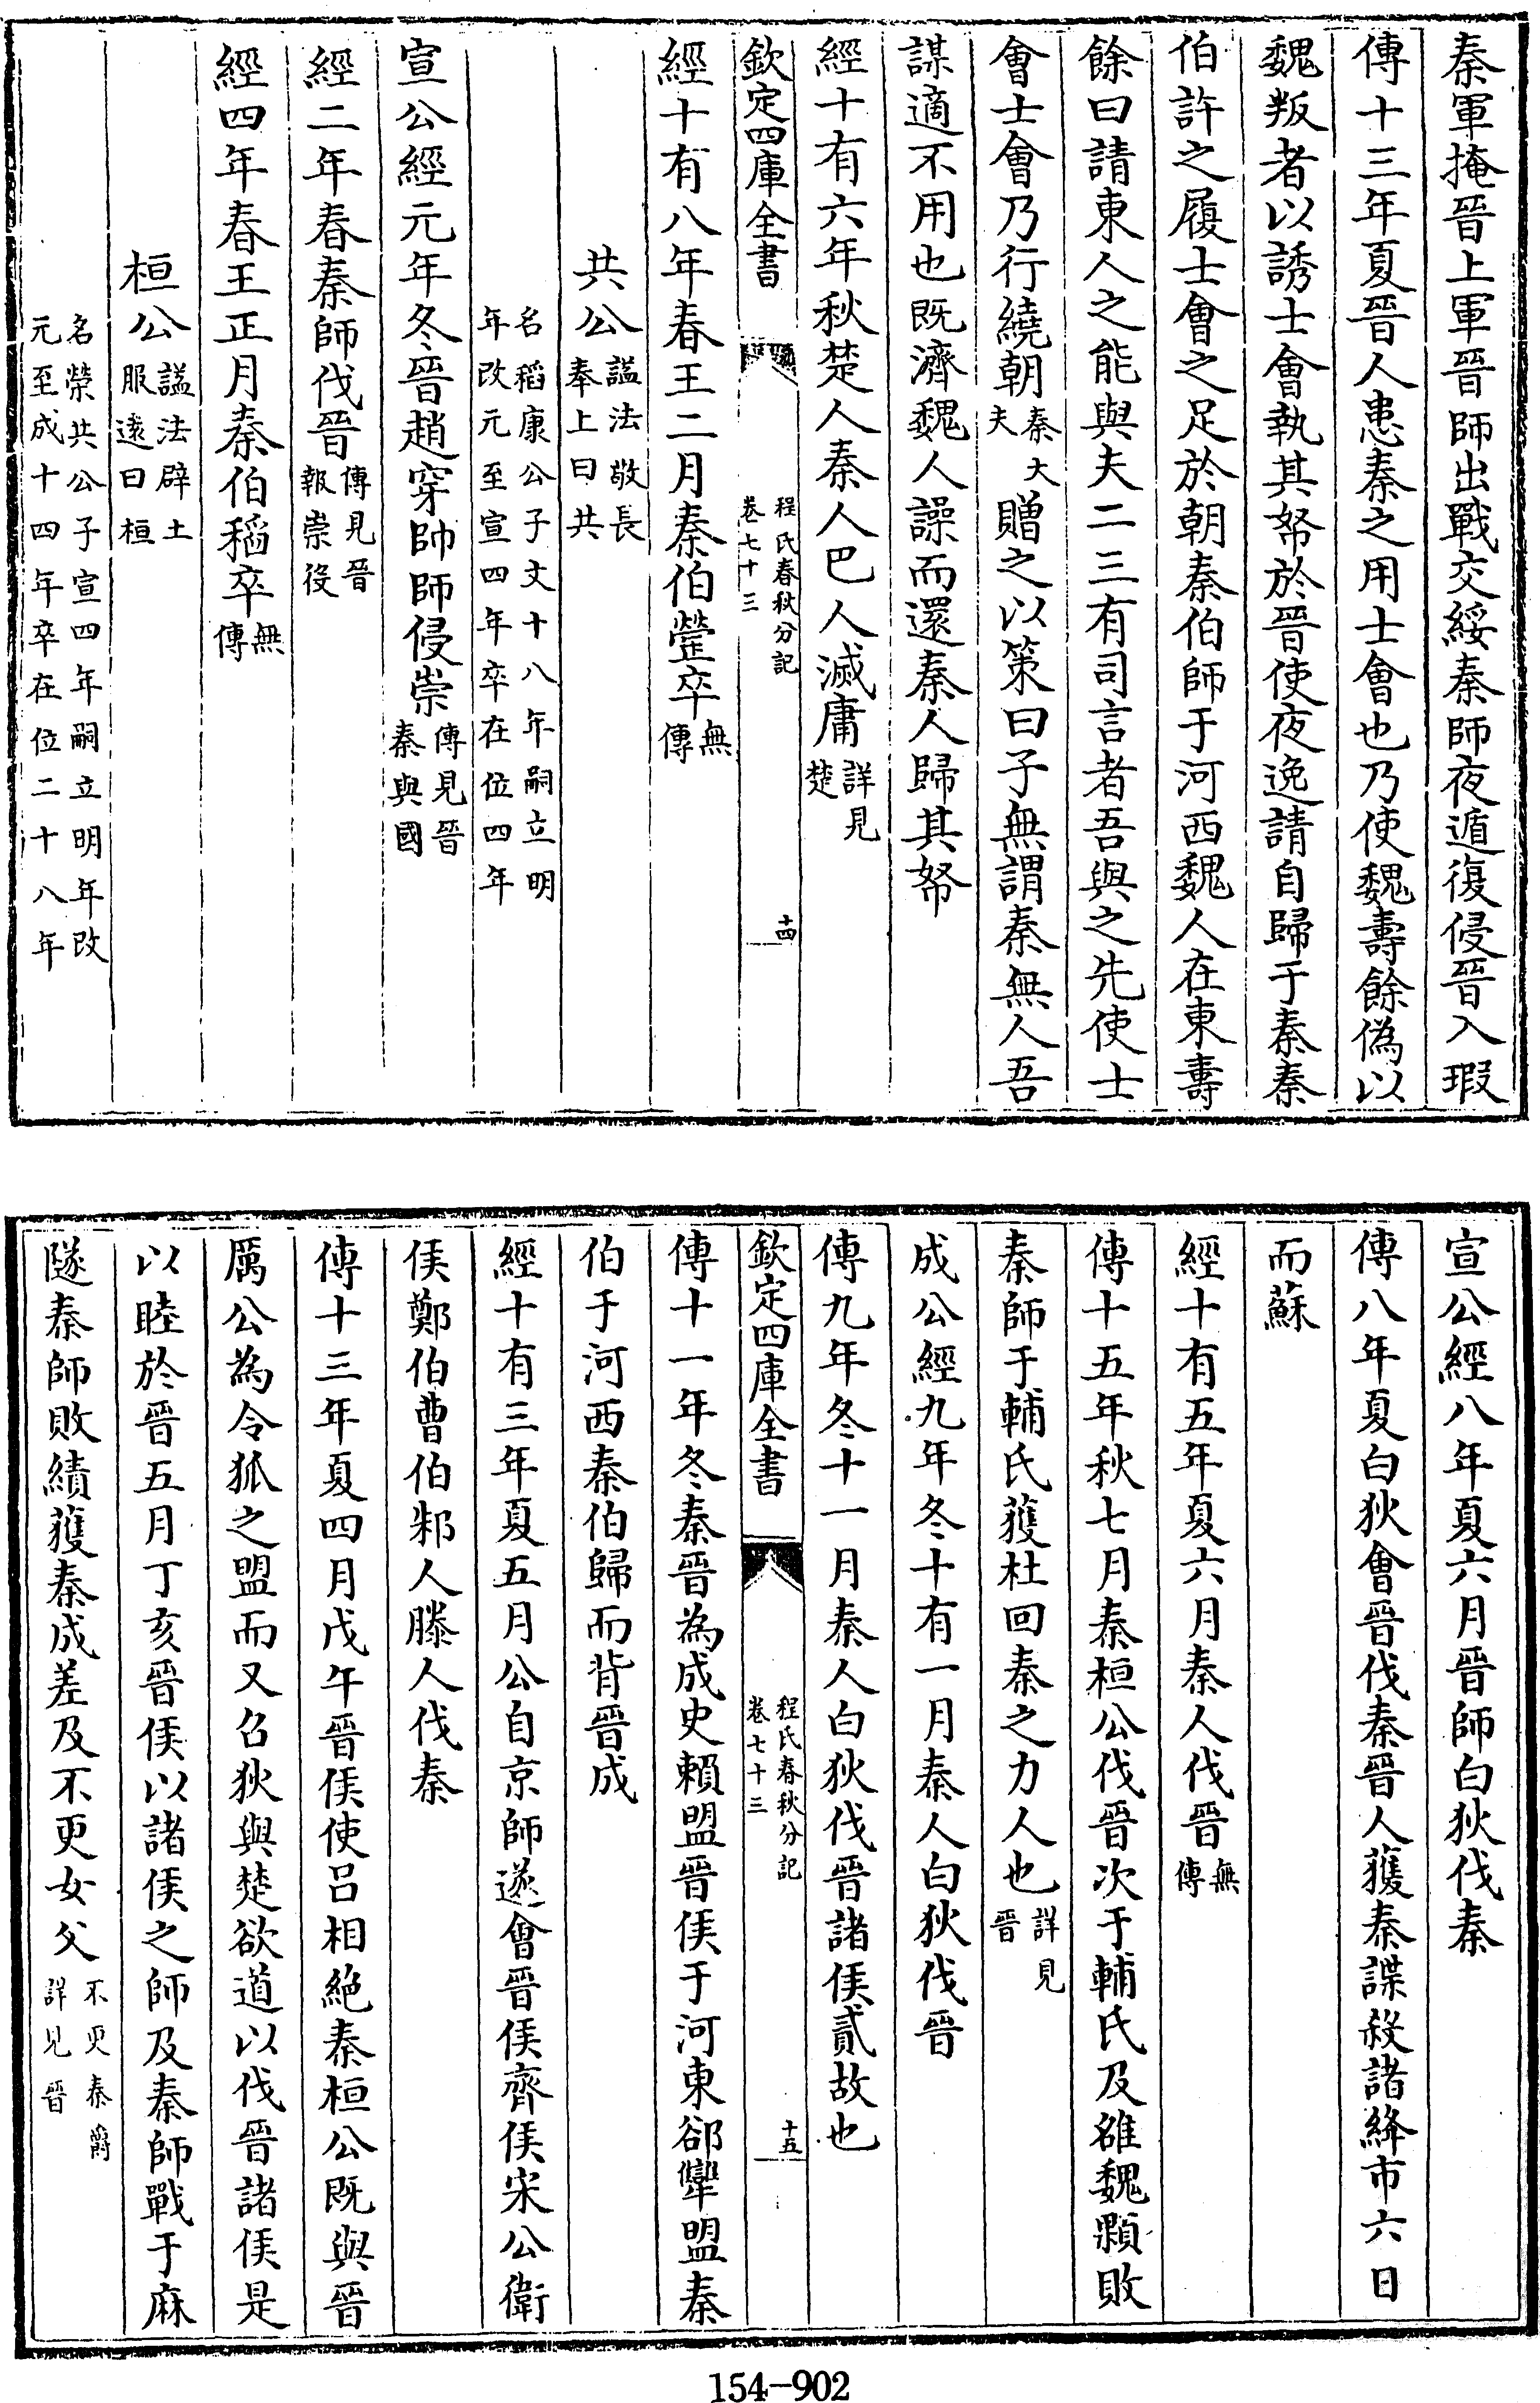 秦軍掩晉上軍晉師出戰交綏秦師夜遁復侵晉入瑕
傳十三年夏晉人患秦之用士會也乃使魏壽餘偽以
魏叛者以誘士會執其帑於晉使夜逸請自歸于秦秦
伯許之履士會之足於朝秦伯師于河西魏人在東壽
餘曰請東人之能與夫二三有司言者吾與之先使士
會士會乃行繞朝秦大夫贈之以策曰子無謂秦無人吾
謀適不用也既濟魏人譟而還秦人歸其帑
經十有六年秋楚人秦人巴人滅庸詳見楚
欽定四庫全書
程氏春秋分記
卷七十三
十四
經十有八年春王二月秦伯罃卒無傳
共公諡法敬長奉上曰共
名稻康公子文十八年嗣立明
年改元至宣四年卒在位四年
宣公經元年冬晉趙穿帥師侵崇傳見晉秦與國
經二年春秦師伐晉傳見晉報崇役
經四年春王正月秦伯稻卒無傳
桓公諡法辟土服遠曰桓
名榮共公子宣四年嗣立明年改
元至成十四年卒在位二十八年
宣公經八年夏六月晉師白狄伐秦
傳八年夏白狄會晉伐秦晉人獲秦諜殺諸絳市六日
而蘇
經十有五年夏六月秦人伐晉無傳
傳十五年秋七月秦桓公伐晉次于輔氏及雒魏顆敗
秦師于輔氏獲杜回秦之力人也詳見晉
成公經九年冬十有一月秦人白狄伐晉
傳九年冬十一月秦人白狄伐晉諸侯貳故也
欽定四庫全書
程氏春秋分記
卷七十三
十五
傳十一年冬秦晉為成史顆盟晉侯于河東郤犨盟秦
伯于河西秦伯歸而背晉成
經十有三年夏五月公自京師遂會晉侯齊侯宋公衛
侯鄭伯曹伯邾人滕人伐秦
傳十三年夏四月戊午晉侯使呂相絕秦桓公既與晉
厲公為令狐之盟而又召狄與楚欲道以伐晉諸侯是
以睦於晉五月丁亥晉侯以諸侯之師及秦師戰于麻
隧秦師敗績獲秦成差及不更女父不更秦爵詳見晉
154-902